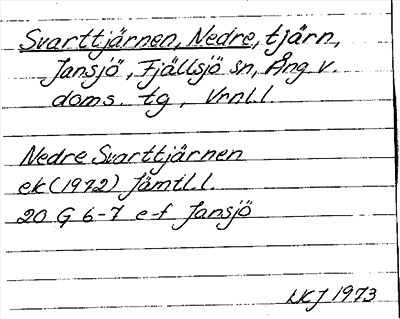 Svarttjärnen, Nedre, tjärn,
Jansjö, Fjällsjö sn, Ång v.
doms. tg, Vrnl.l.
Nedre Svarttjärnen
ek (1972) Jämtl.l.
20 G 6-7 e-f Jansjö
LKJ 1973